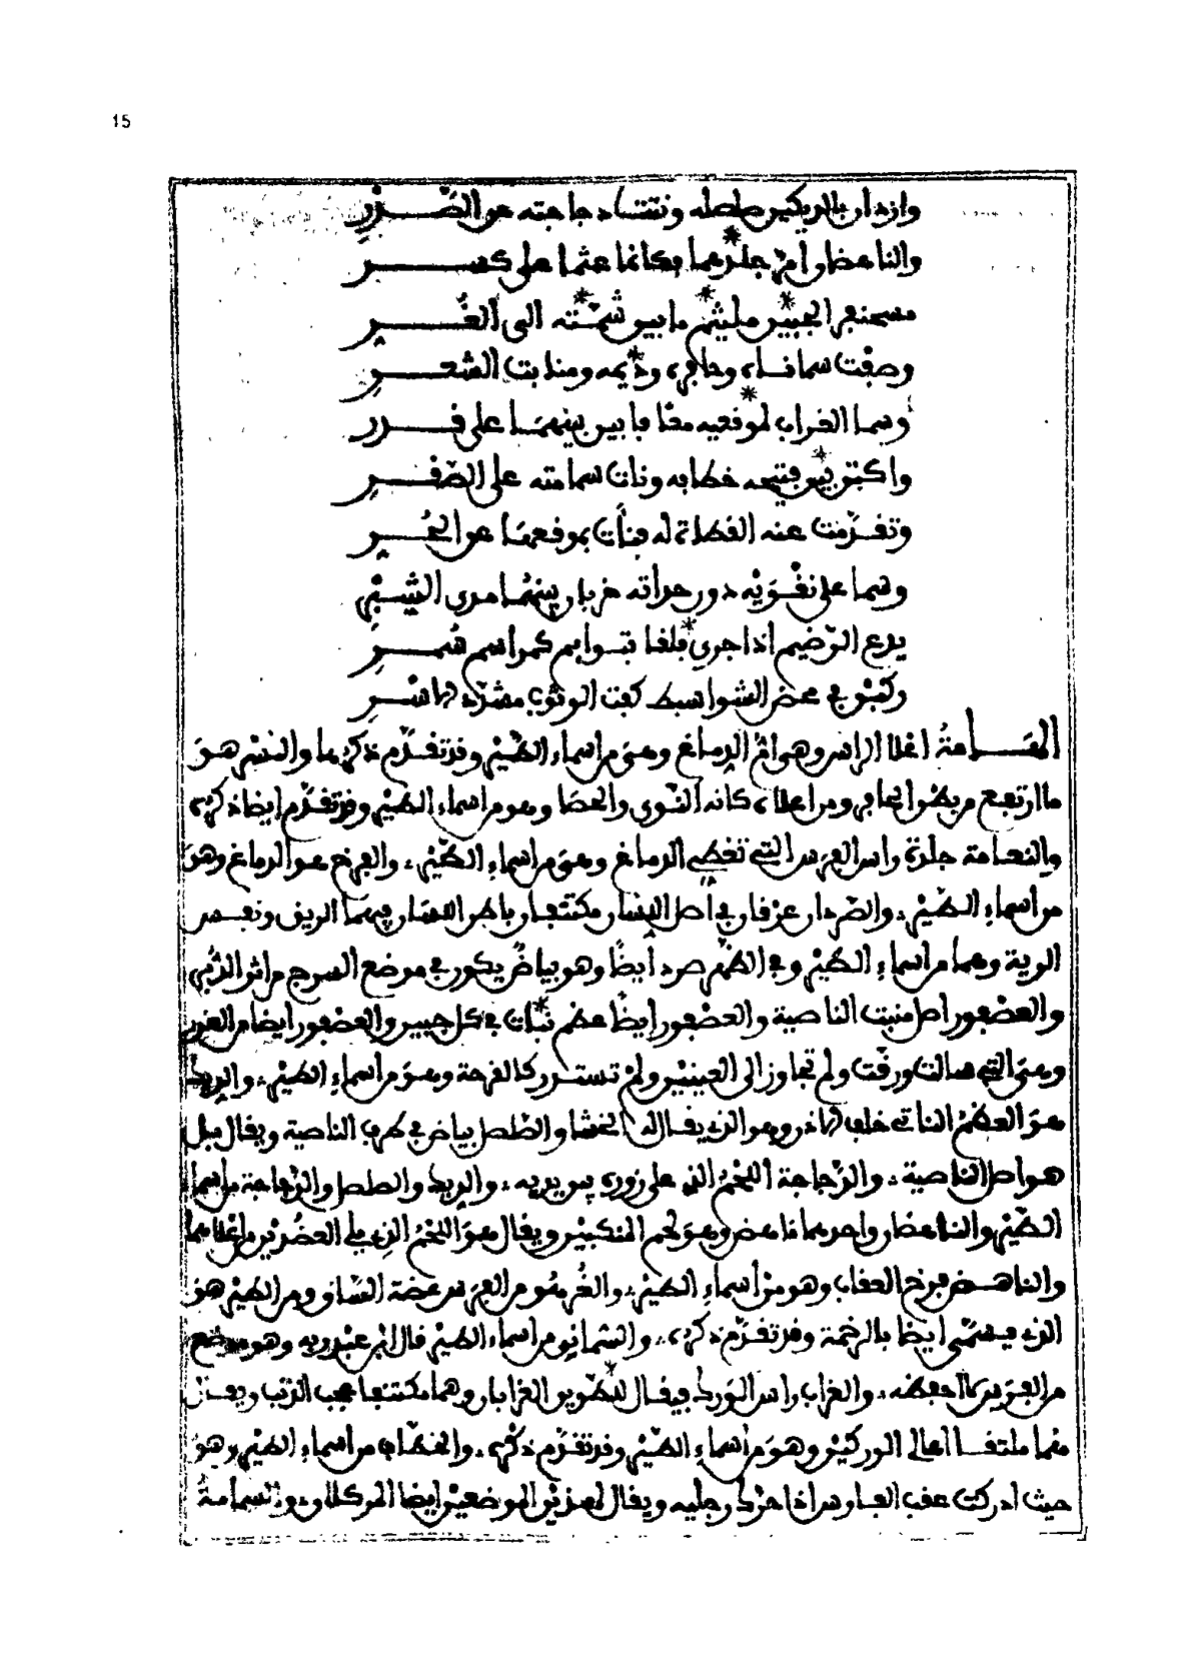 15
وازدان بالديكين صلصله ونبت دجاجته عن الصدر
والناهضان امر جلزهما فكانما عثما على كسر
مسحنفر الجبين ملتئم ما بين شيمته الى الغر
وصفت سماناه وحافره واديمه ومنابت الشعر
وسما الغراب لموقعيه معا فابين بينهما على قدر
واكتن دون قبيحه خطافه ونأت سمامته على الصقر
وتقدمت عنه القطاة له فنأت بموقعها عن الحر
وسما على نقويه دون حداته خربان بينهما مدى الشبر
يدع الرضيم اذا جرى فلقا بتوايم كمواسم سمر
ركبن في محض الشوا سبط كفت الوثوب مشدد الاسر
الهامة اعلا الراس وهو ام الدماغ وهي من اسماء الطير وقد تقدم ذكرها والنسر هو
ما ارتفع من بطن الحافر ومن اعلاه كانه النوى والحصا وهو من اسماء الطير وقد تقدم ايضا ذكره
والنعامة جلدة راس الفرس التي تغطي الدماغ وهي من اسماء الطير، والفرخ هو الدماغ وهو
من اسماء الطير، والصردان عرقان في اصل اللسان مكتنفان باطن اللسان فيهما الريق ونفس
الرية وهما من اسماء الطير وفي الظهر صرد أيضًا وهو بياض يكون في موضع السرج من اثر الدبر
والعصفور اصل منبت الناصية والعصفور ايضا عظم نبات في كل جبين والعصفور ايضا من الغرر
وهي التي سالت ورقت ولم تجاوز الى العينين ولم تستدر كالقرحة وهو من أسماء الطير، والديك
هو العظم الناتي خلف الاذن وهو الذي يقال له الخششا والصلصل بياض في طرف الناصية ويقال بل
هو اصل الناصية، والدجاجة اللحم الذي على زوره بين يديه، والديك والصلصل والدجاجة من اسماء
الطير والناهضان واحدهما ناهض وهو لحم المنكبين ويقال هو اللحم الذي يلي العضدين من اعلاهما
والناهض فرخ العقاب وهو من أسماء الطير، والغر هو من الفرس عضلة الساق ومن الطير هو
الذي يسمى ايضا بالرخمة وقد تقدم ذكره، والسمانى من اسماء الطير قال ابن عبد ربه وهو موضع
من الفرس لا احفظه، والغراب راس الورك فيقال للصلوين الغرابان وهما مكتنفا عجب الذنب ويقال
هما ملتقا اعالى الوركين وهو من أسماء الطير وقد تقدم ذكره، والخطاف من اسماء الطير وهو
حيث ادركت عقب الفارس اذا حرك رجليه ويقال لهذين الموضعين ايضا المركلان، والسمامة